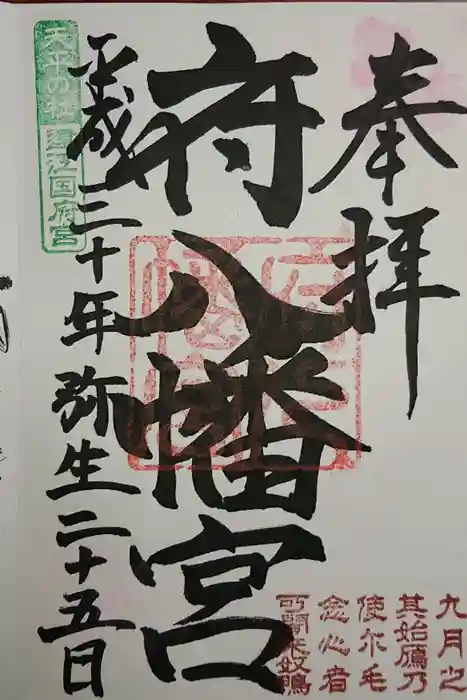 奉拝
府八幡宮
平成三十年弥生二十五日
天平の社
遠江国府宮
九月之
其始鴈乃
使尓毛
念心者
可聞来奴鴨